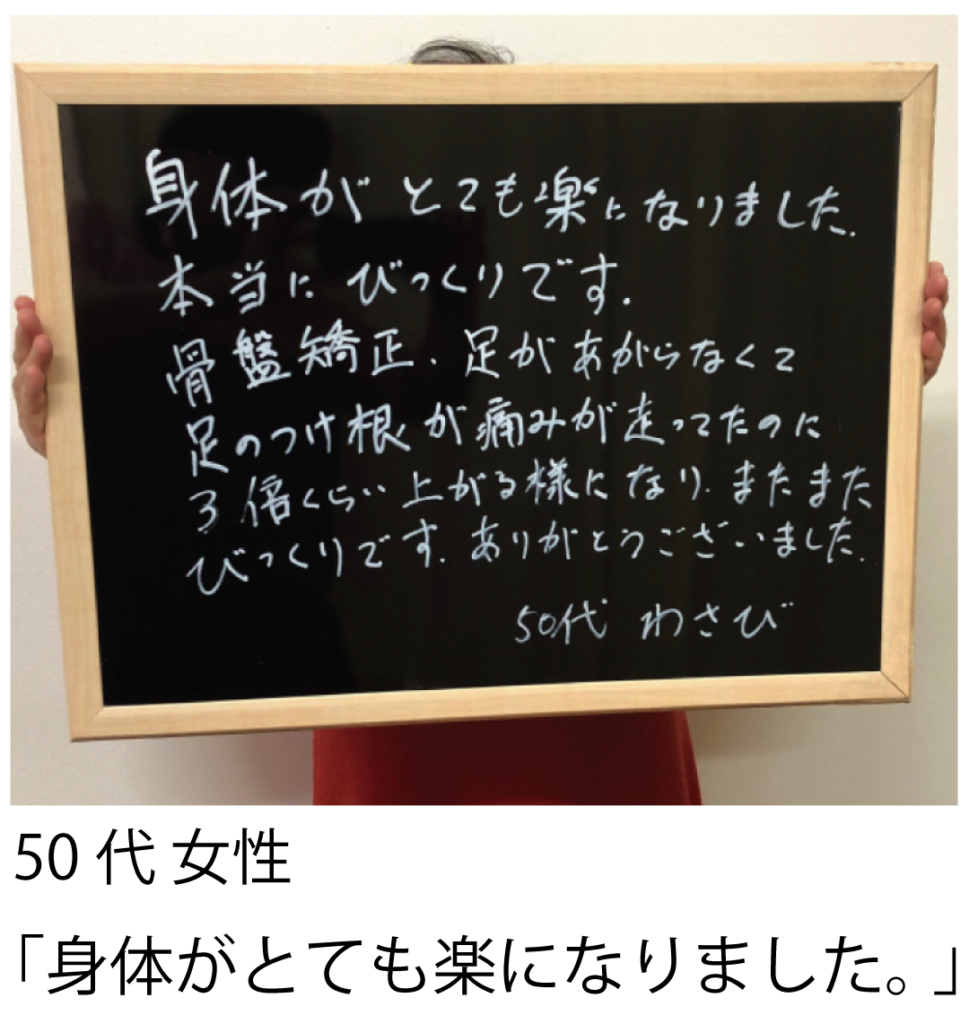 身体がとても楽になりました.
本当にびっくりです.
骨盤矯正.足があがらなくて
足のつけ根が痛みが走ってたのに
3倍くらい上がる様になり.またまた
びっくりです.ありがとうございました.
50代 わさび
50代 女性
「身体がとても楽になりました。」